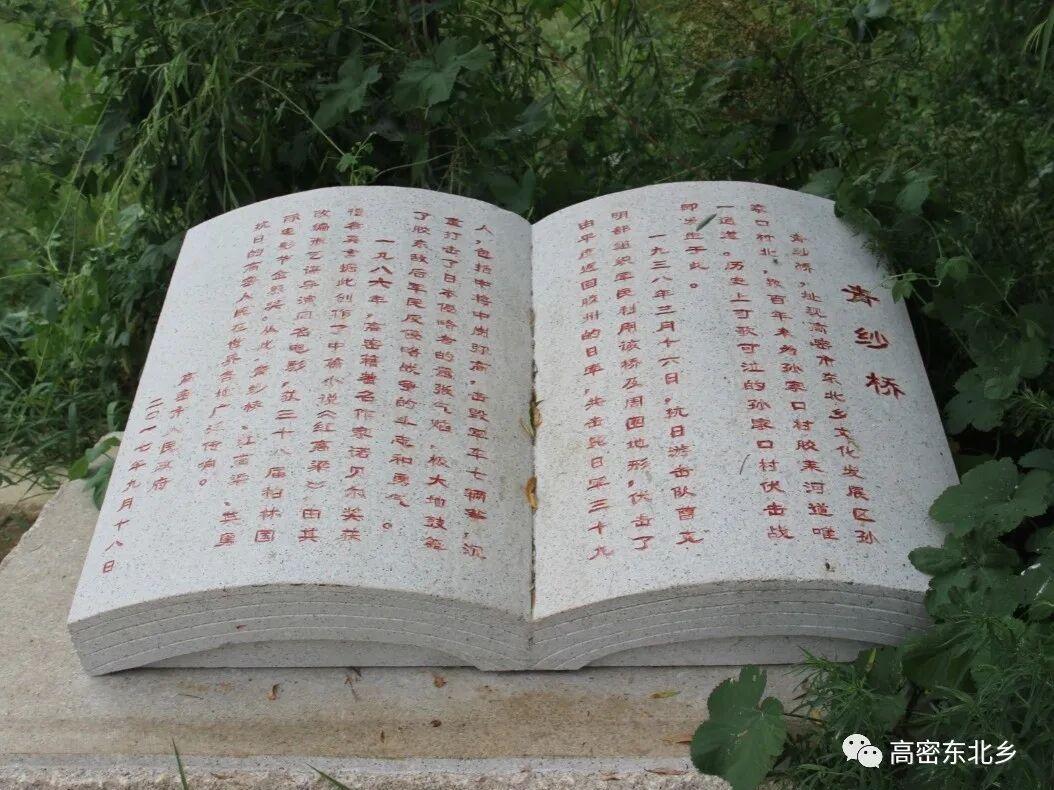 青纱桥
青纱桥，址现高密市东北乡文化发展区孙
家口村北，数百年来为孙家口村胶莱河道唯
一通道。历史上可歌可泣的孙家口村伏击战
即发生于此。
一九三八年三月十六日，抗日游击队曹克
明部组织军民利用该桥及周围地形，伏击了
由平度返回胶州的日军，共击毙日军三十九
人，包括中将中岗弥高，击毁军车七辆，沉
重打击了日本侵略者的嚣张气焰，极大地鼓舞
了胶东敌后军民反侵略战争的斗志和勇气。
一九八六年，高密籍著名作家诺贝尔奖获
得者莫言据此创作了中篇小说《红高粱》，由其
改编张艺谋导演同名电影，获三十八届柏林国
际电影节金熊奖。从此，青纱桥、红高粱、英勇
抗日的高密人民在世界各地广泛传响。
高密市人民政府
二〇一七年九月十八日
高密东北乡